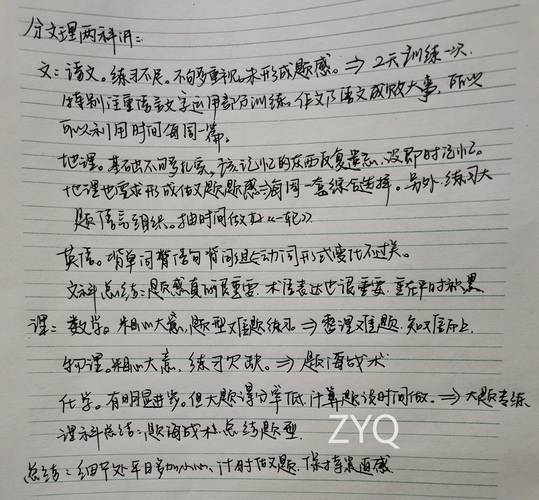 分文理两科讲:
文:语文。练习不足。不够多重视,未形成题感。⇒ 2天训练一次.
特别注重语言文字运用部分训练。作文乃语文成败大事,所以
可以利用时间每周一篇。
地理。基础不够扎实,该记忆的东西反复遗忘,没即时记忆。
地理也要求形成做题题感⇒每周一套综合选择。另外,练习大
题语言组织。抽时间做好《一轮》
英语。背单词背语句背词组,动词形式变化不过关。
文科总结:题感真的很重要.术语表达也很重要.重在平时积累
理:数学。粗心大意,题型难题练习⇒ 整理难题.知难而上.
物理。粗心大意,练习欠缺。⇒ 题海战术
化学。有明显进步。但大题得分率低,计算题没时间做。⇒ 大题专练
理科总结:题海战术.总结题型.
ZYQ
总结:细节处平日多加小心,计时做题.保持紧迫感.